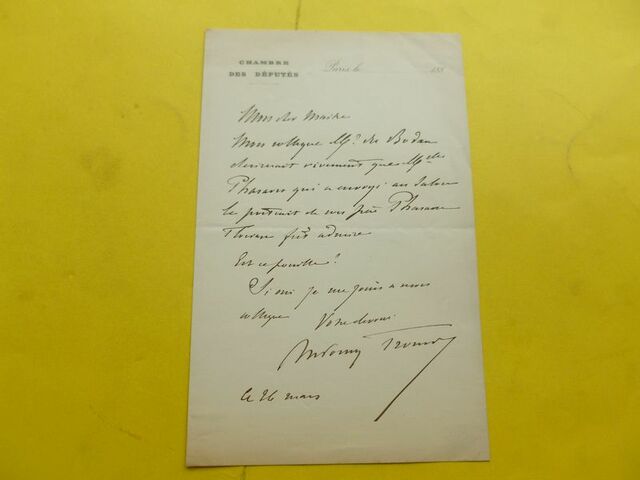 CHAMBRE
DES DÉPUTÉS
Paris, le 188
Mon cher Maître
Mon collègue Mr. des
désirerait vivement que
qui a envoyé au Salon
le portrait de son père
fût admise
Est ce possible?
Si oui je me joins à mon
collègue Votre dévoué
Antonin Proust
le 26 mars